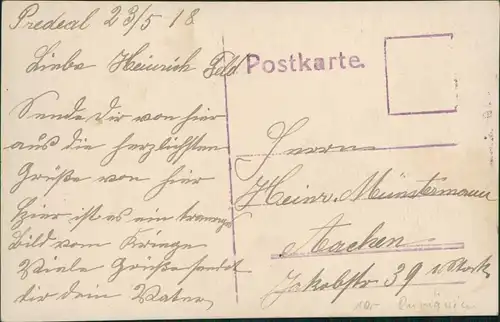 Predeal 23/5 18
Liebe Heinrich
Sende Dir von hier
aus die herzlichsten
Grüße von hier
Hier ist es ein traurigs
Bild vom Kriege
Viele Grüße sendet
dir dein Vater
Feld Postkarte.
Herrn
Heinr. Münstermann
Aachen
Jakobstr 39 1 Stock